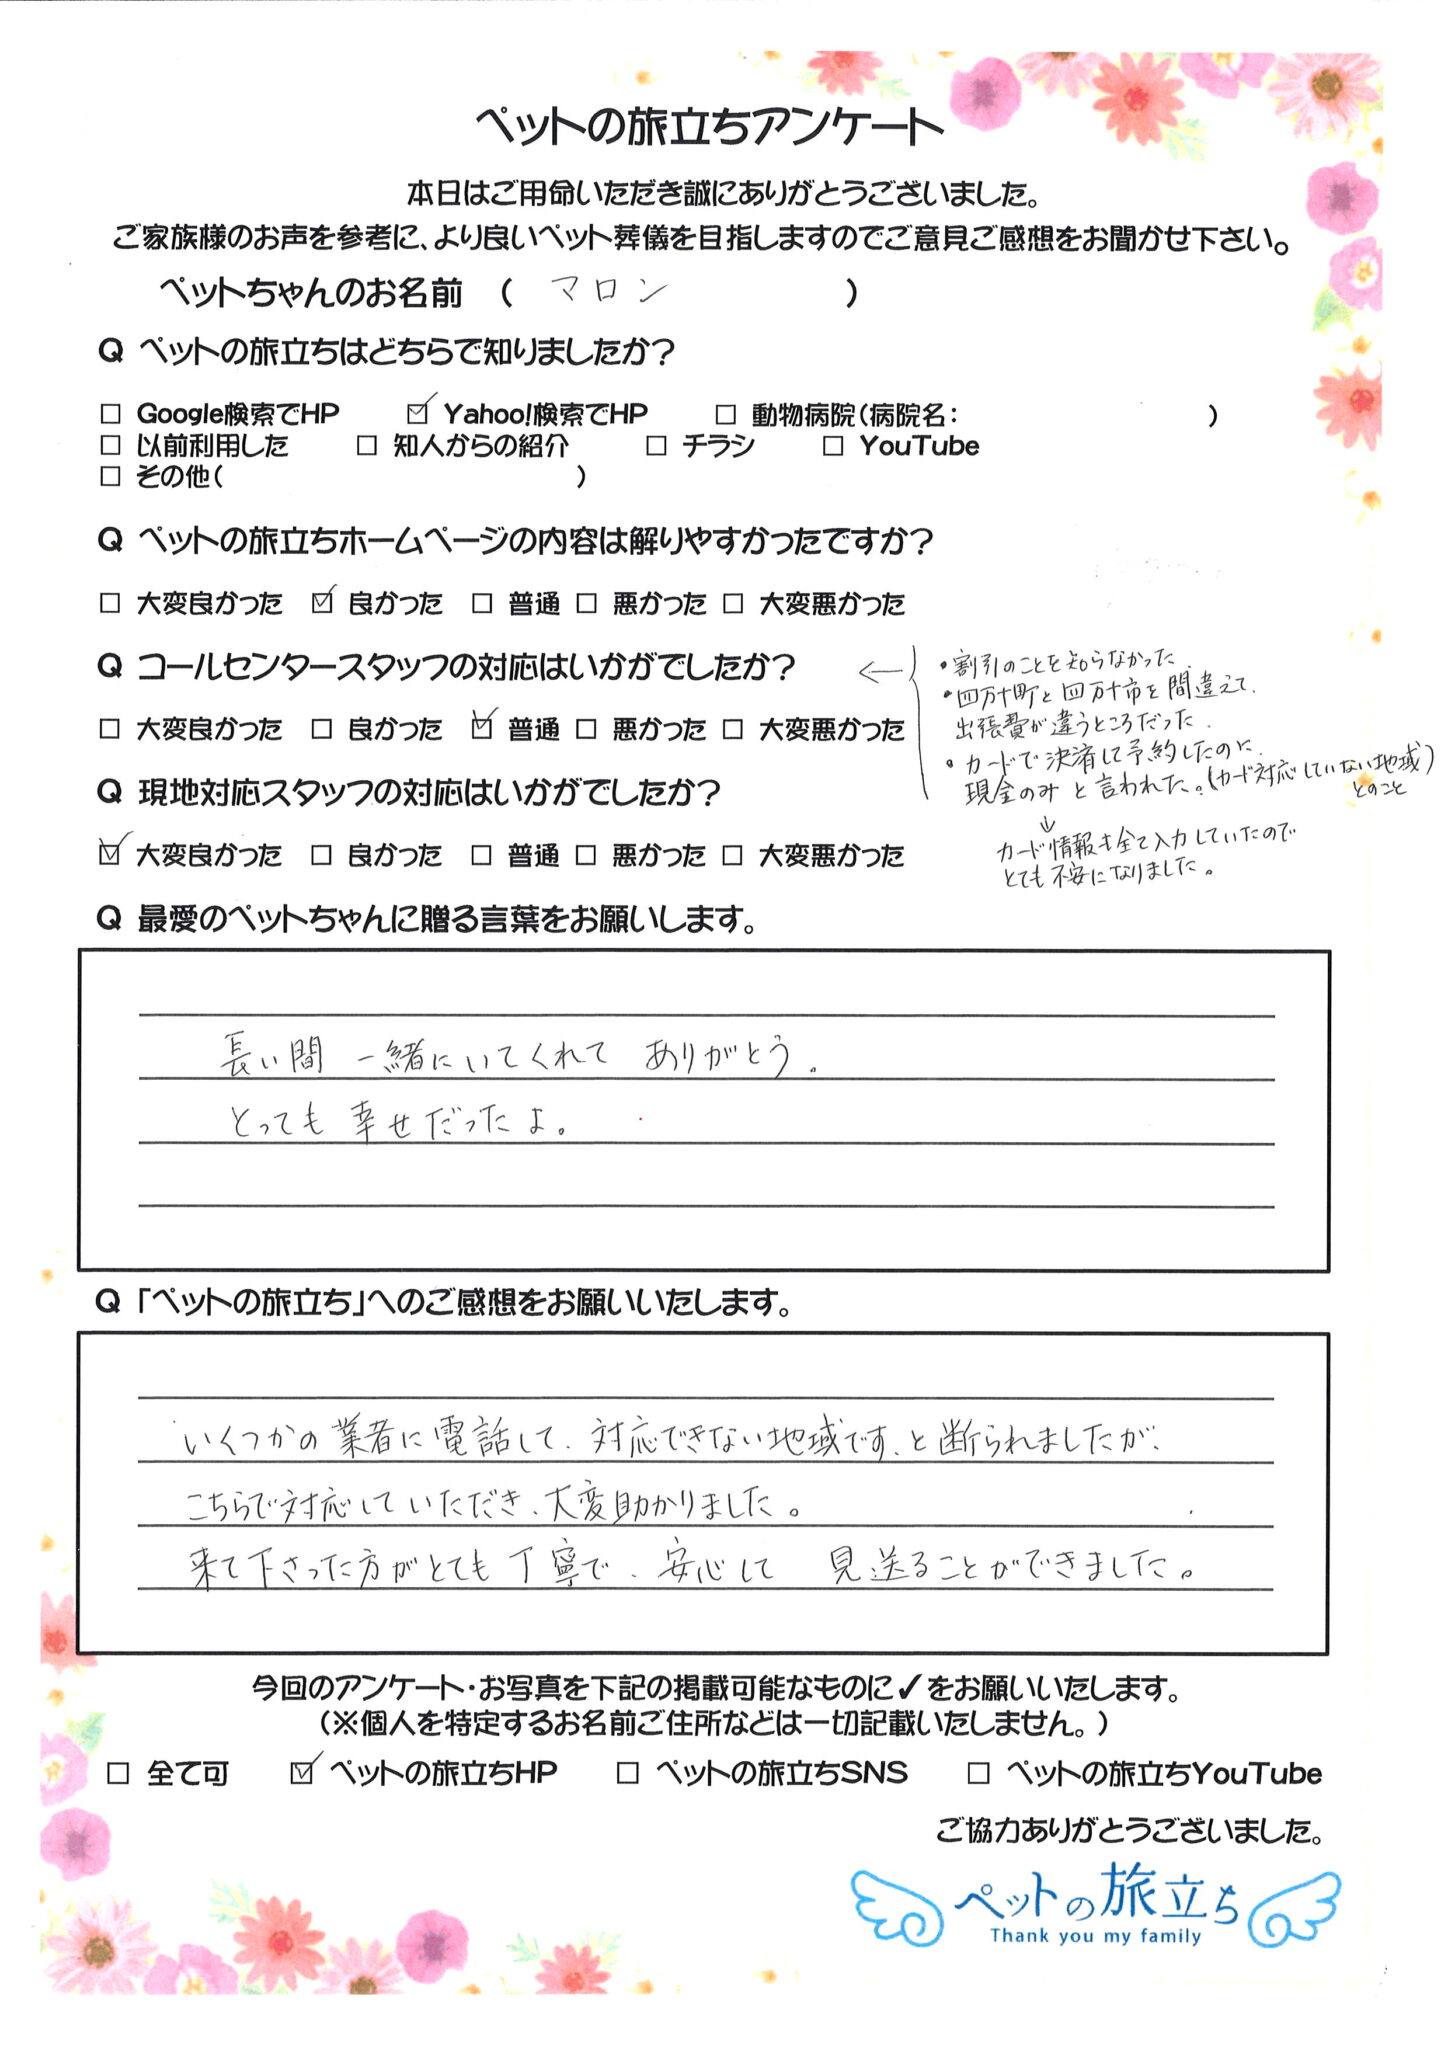 ペットの旅立ちアンケート
本日はご用命いただき誠にありがとうございました。
ご家族様のお声を参考に、より良いペット葬儀を目指しますのでご意見ご感想をお聞かせ下さい。
ペットちゃんのお名前 ( マロン )
Q ペットの旅立ちはどちらで知りましたか?
□ Google検索でHP ☑ Yahoo!検索でHP □ 動物病院(病院名: )
□ 以前利用した □ 知人からの紹介 □ チラシ □ YouTube
□ その他( )
Q ペットの旅立ちホームページの内容は解りやすかったですか?
□ 大変良かった ☑ 良かった □ 普通 □ 悪かった □ 大変悪かった
Q コールセンタースタッフの対応はいかがでしたか?
□ 大変良かった □ 良かった ☑ 普通 □ 悪かった □ 大変悪かった
←
・割引のことを知らなかった
・四万十町と四万十市を間違えて、
出張費が違うところだった、
・カードで決済して予約したのに、
現金のみと言われた。(カード対応していない地域)
とのこと
↓
カード情報も全て入力していたので
とても不安になりました。
Q 現地対応スタッフの対応はいかがでしたか?
☑ 大変良かった □ 良かった □ 普通 □ 悪かった □ 大変悪かった
Q 最愛のペットちゃんに贈る言葉をお願いします。
長い間 一緒にいてくれて ありがとう。
とっても 幸せだったよ。
Q 「ペットの旅立ち」へのご感想をお願いいたします。
いくつかの業者に電話して、対応できない地域です、と断られましたが、
こちらで対応していただき、大変助かりました。
来て下さった方がとても丁寧で、安心して 見送ることができました。
今回のアンケート・お写真を下記の掲載可能なものに✓をお願いいたします。
(※個人を特定するお名前ご住所などは一切記載いたしません。)
□ 全て可 ☑ ペットの旅立ちHP □ ペットの旅立ちSNS □ ペットの旅立ちYouTube
ご協力ありがとうございました。
ペットの旅立ち
Thank you my family